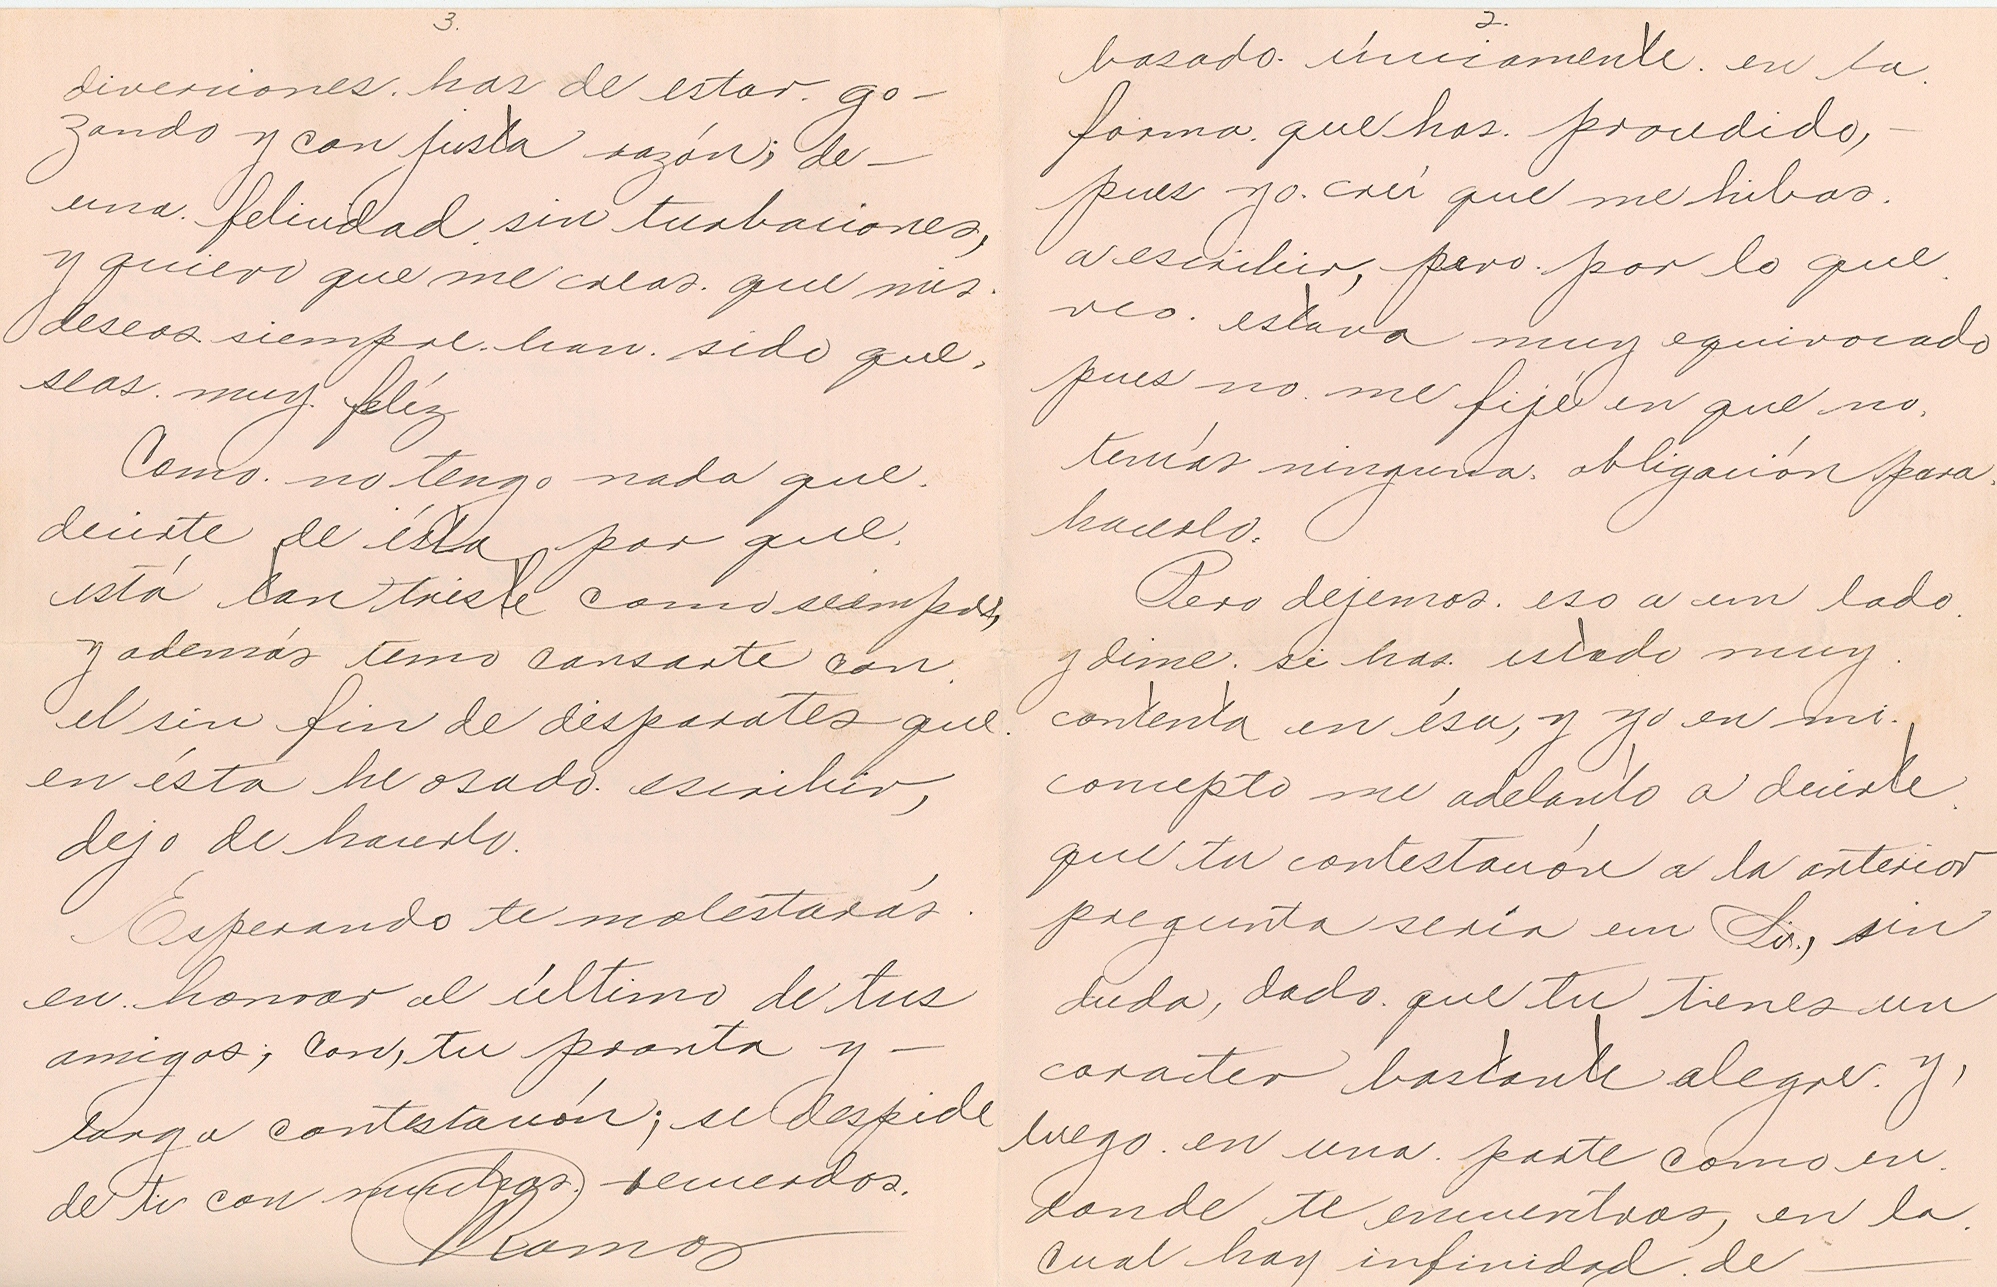 2.
basado. únicamente. en la.
forma. que has. procedido, —
pues yo. creí que me hibas.
a escribir, pero. por lo que.
veo. estava muy equivocado
pues no. me fijé en que no.
tenías ninguna. obligación para.
hacerlo.
Pero dejemos. eso a un lado.
y dime. si has. estado muy.
contenta en ésa, y yo en mi.
concepto me adelanto a decirte.
que tu contestación a la anterior
pregunta sería un Si., sin
duda, dado. que tu tienes un
caracter bastante alegre. y,
luego. en una. parte como en.
donde te encuentras, en la.
cual hay infinidad. de —
3.
diverciones. has de estar. go-
zando y con justa razón; de —
una. felicidad. sin turbaciones,
y quiero que me creas. que mis.
deseos siempre. han. sido que.
seas. muy. felíz
Como. no tengo nada que.
decirte de ésta por que.
está tan triste como siempre,
y además temo cansarte con.
el sin fin de disparates que.
en ésta he osado. escribir,
dejo de hacerlo.
Esperando te molestarás.
en. honrar al último de tus
amigos; con, tu pronta y —
larga contestación; se despide
de tu con muchos. recuerdos.
Ramos